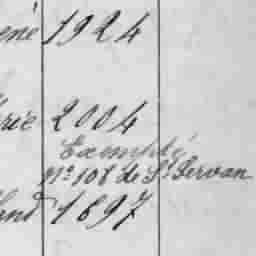 éné 1924
rie 2004
Exempté
Nº 108 de St Servan
and 1897